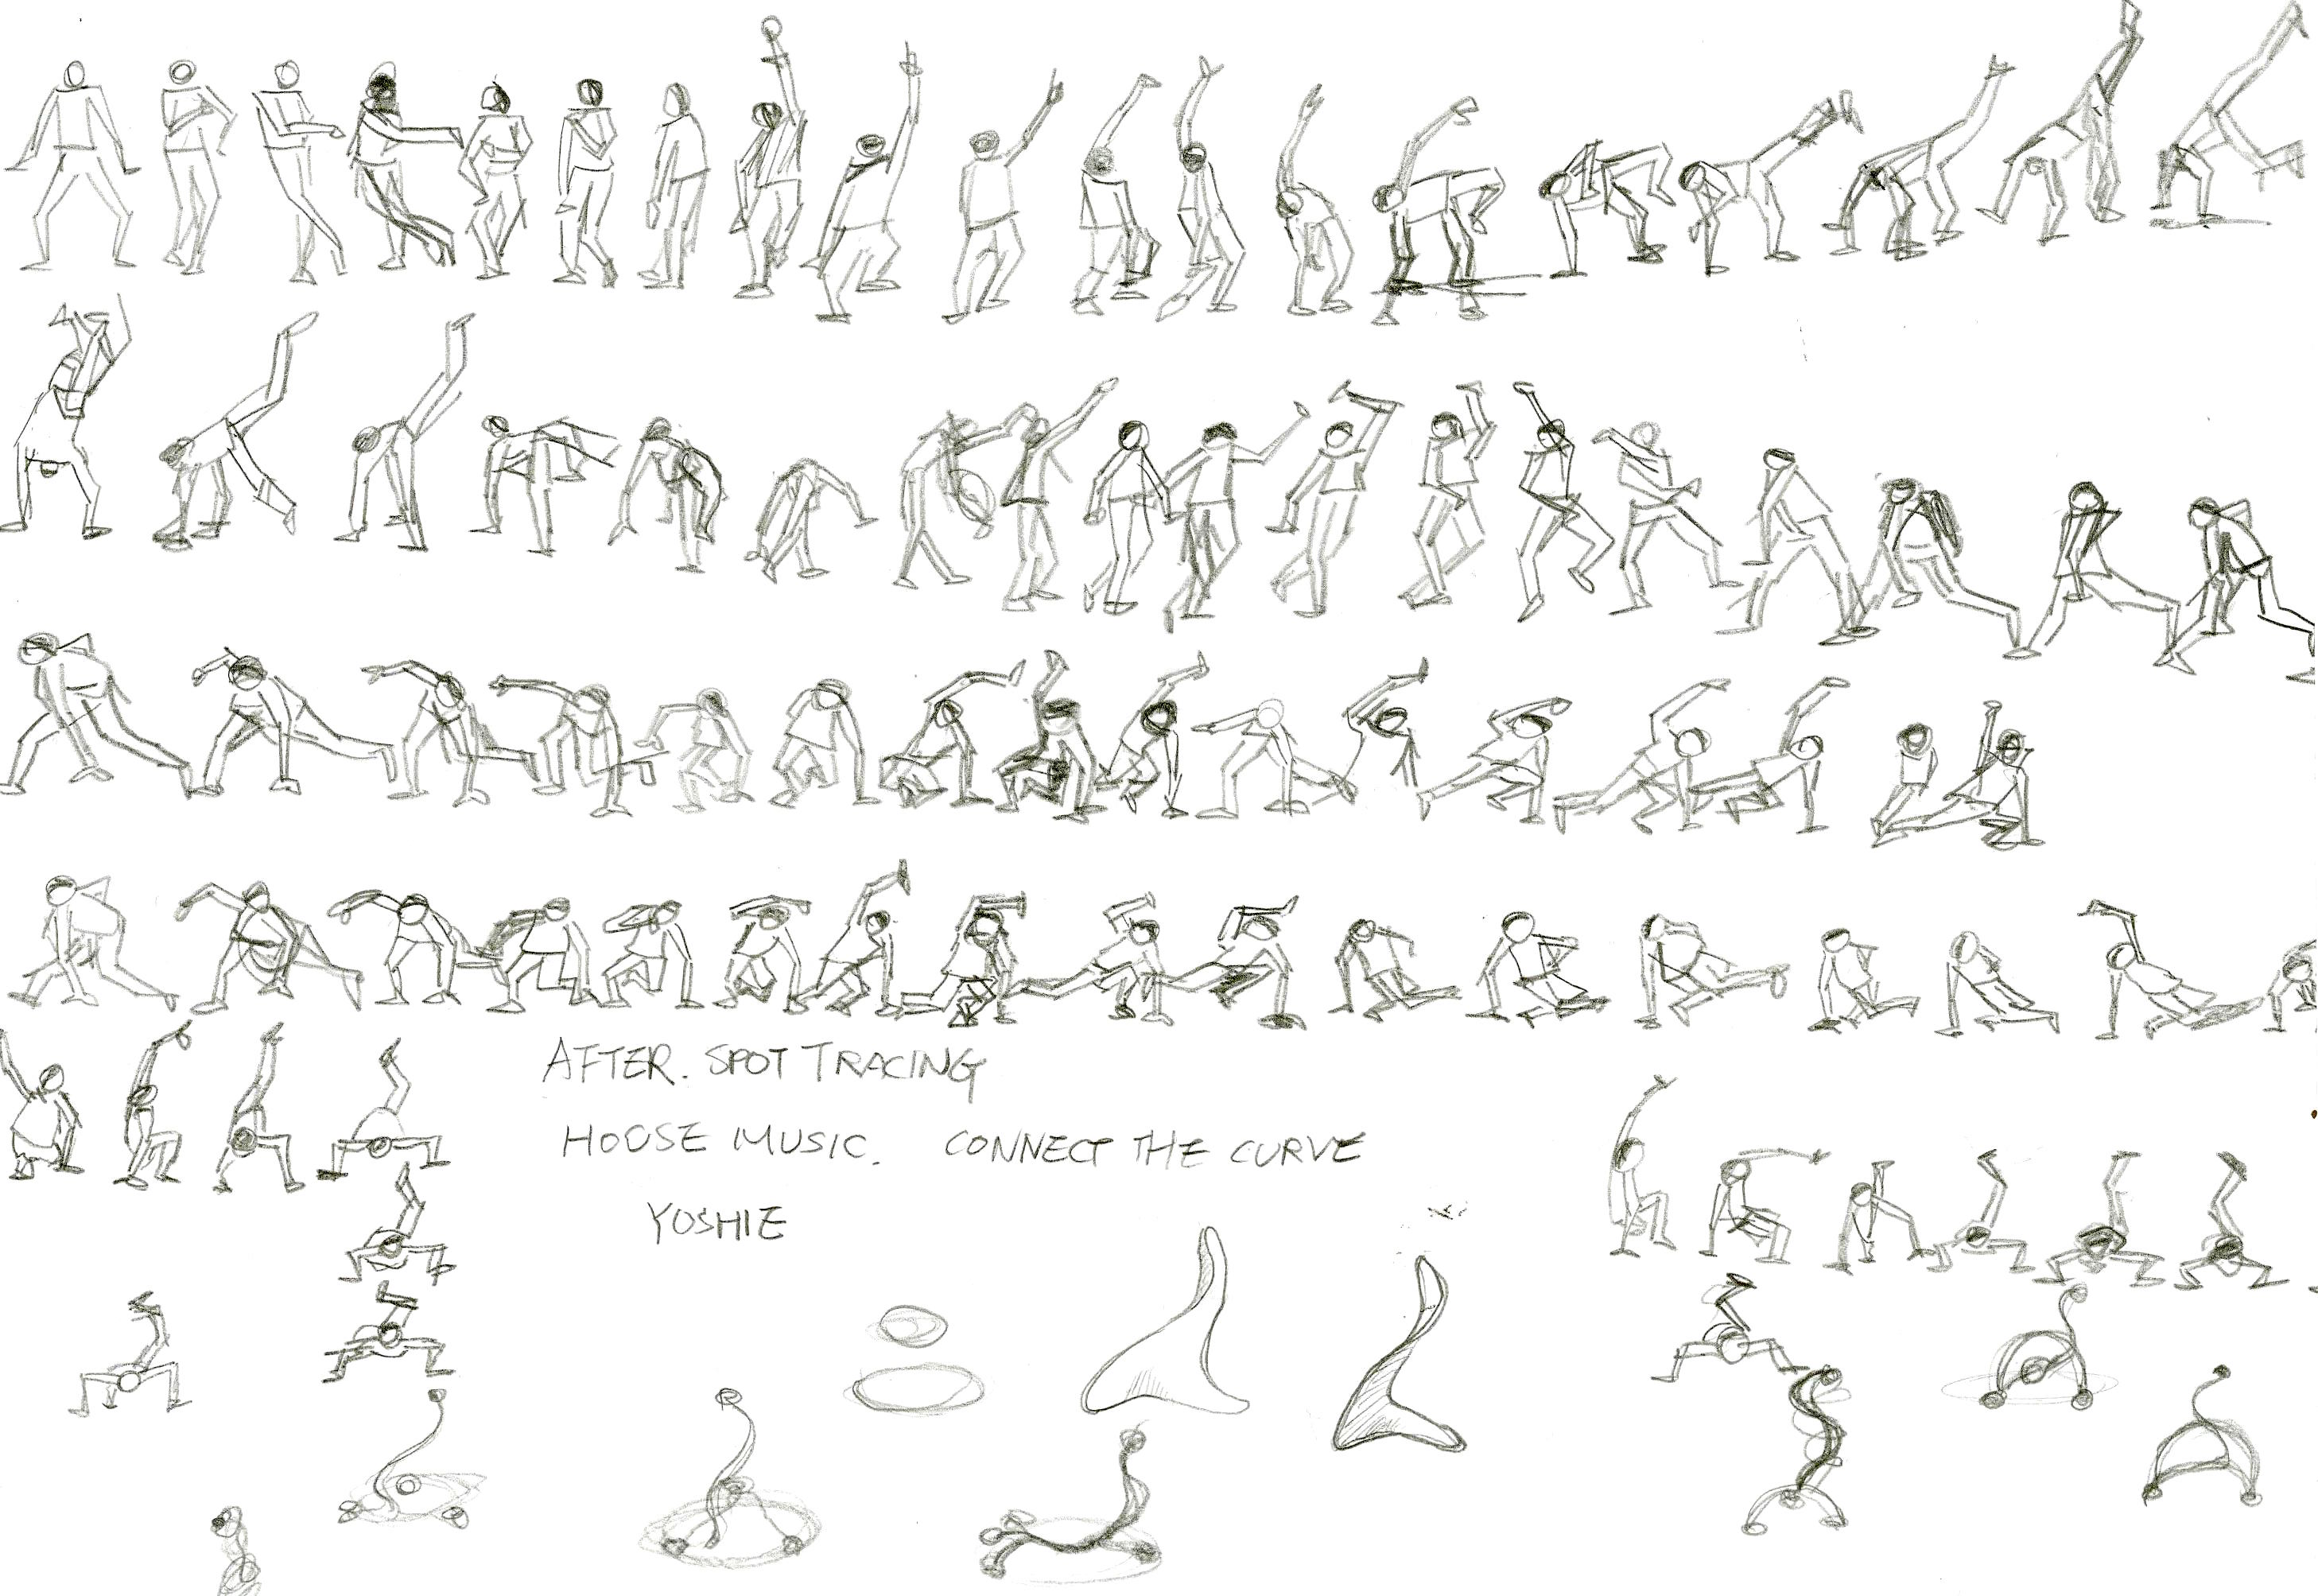 AFTER. SPOT TRACING
HOUSE MUSIC. CONNECT THE CURVE
YOSHIE